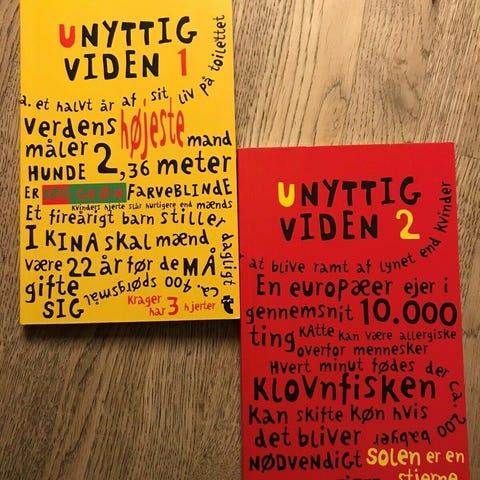 UNYTTIG
VIDEN 1
a. et halvt år af sit liv på toilettet
Verdens højeste mand
måler 2,36 meter
HUNDE
ER RØDGRØN FARVEBLINDE
Kvinders hjerte slår hurtigere end mænds
Et fireårigt barn stiller
ca. 400 spørgsmål dagligt
I KINA skal mænd
være 22 år før de MÅ
gifte
SIG
Krager
har 3 hjerter
t
UNYTTIG
VIDEN 2
at blive ramt af lynet end kvinder
En europæer ejer i
gennemsnit 10.000
ting
Katte kan være allergiske
overfor mennesker
Hvert minut fødes der ca. 200 babyer
Klovnfisken
kan skifte køn hvis
det bliver
NØDVENDIGT
SOLEN er en
stjerne